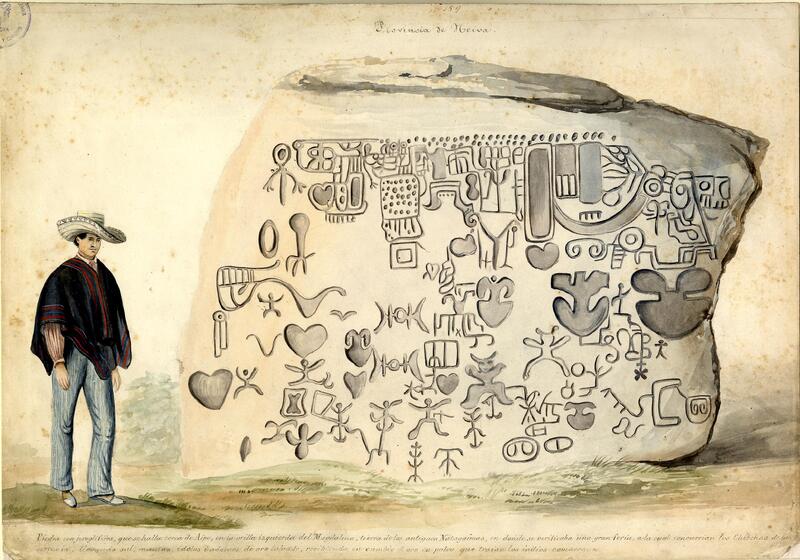 159
Provincia de Neiva.
Piedra con geroglíficos, que se halla cerca de Aipe, en la orilla izquierda del Magdalena, tierra de los antiguos Natagaimas, en donde se verificaba una gran feria, a la cual concurrian los Chibchas de
sal, mantas, de oro labrado, recibiendo en cambio el oro en polvo que traian los indios comarcanos.